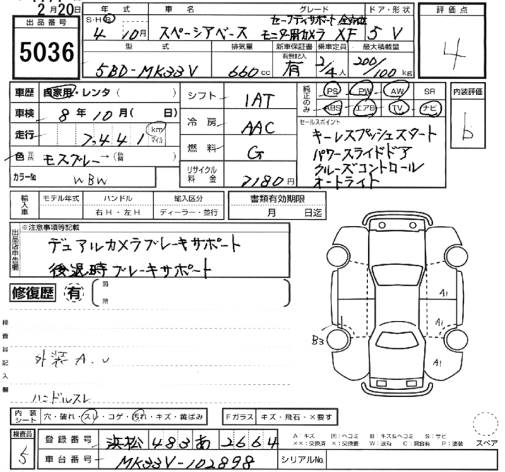 2月20日
出品番号 5036
年式 車名 グレード ドア・形状 評価点
S・H・R 4年10月 スペーシアベース セーフティサポート 全方位モニタ用カメラ XF 5 V 4
型式 排気量 新車保証書 乗車定員 最大積載量
5BD-MK33V 660cc 有 2/4人 200/100kg
車歴 自家用・レンタ シフト IAT 純正のみ PS PW AW SR 内装評価
車検 8年10月(日) ABS エアB TV ナビ b
走行 7,441 km 冷房 AAC セールスポイント
色 モスグレー→ 燃料 G キーレスプッシュスタート
カラーNo WBW リサイクル料金 7180円 パワースライドドア
クルーズコントロール
オートライト
輸入車 モデル年式 ハンドル 輸入区分 書類有効期限
年 右H・左H ディーラー・並行 月 日迄
出品店申告欄 ※注意事項等記載
デュアルカメラブレーキサポート
後退時ブレーキサポート
修復歴 有 箇所
検査員記入欄
外装 A.U
ハンドルスレ
B3 A1 A1 A1
内装シート 穴・破れ・スレ・コゲ・汚れ・キズ・黄ばみ Fガラス キズ・飛石・×要す スペア
検査員 5 登録番号 浜松 483 あ 2664
車台番号 MK33V-102898 シリアルNo.